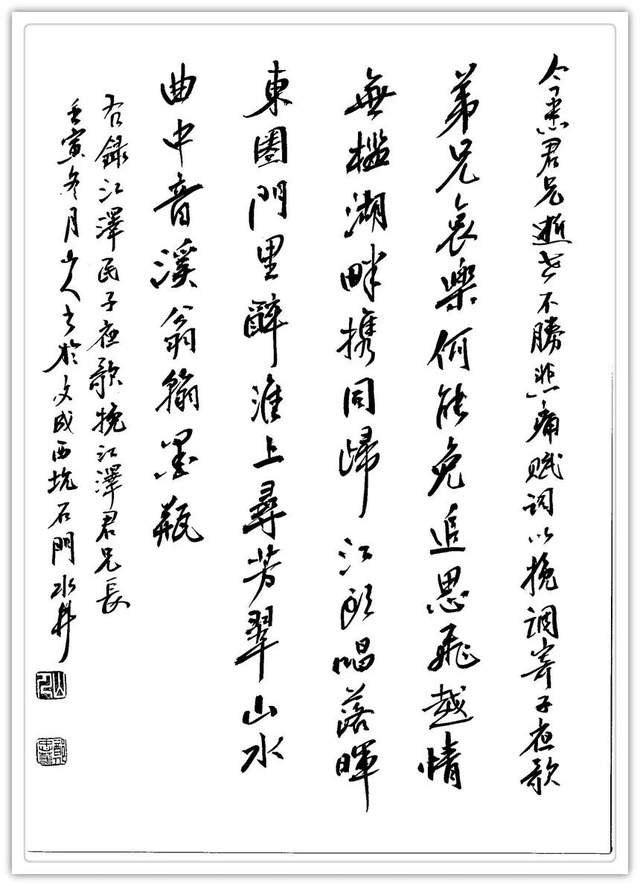 今悉君兄逝世不勝悲痛賦词以挽调寄子夜歌
弟兄哀樂何能免追思飛越情
無檻湖畔携同歸江頭唱落暉
東圈門里醉淮上尋芳翠山水
曲中音溪翁翰墨瓶
右錄江澤民子夜歌挽江澤君兄長
壬寅冬月山人书於文成西坑石門水井